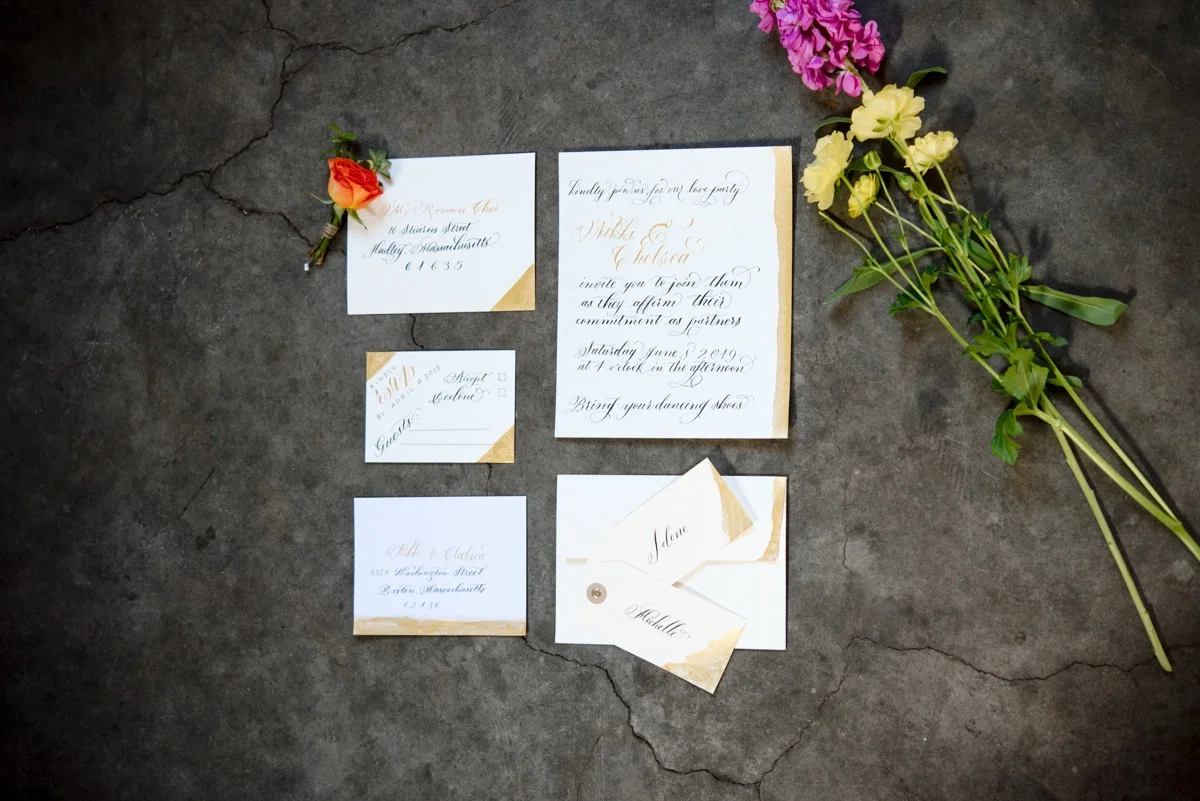 Rowan Choi
16 Stearns Street
Hadley, Massachusetts
61635
kindly join us for our love party
Nikki &
Chelsea
invite you to join them
as they affirm their
commitment as partners
Saturday June 8 2019
at 4 o'clock in the afternoon
Bring your dancing shoes
KINDLY
RSVD
BY APRIL 4 2019
Accept
Decline
Guests:
Nikki & Chelsea
Washington Street
Boston, Massachusetts
02136
Selene
Michelle